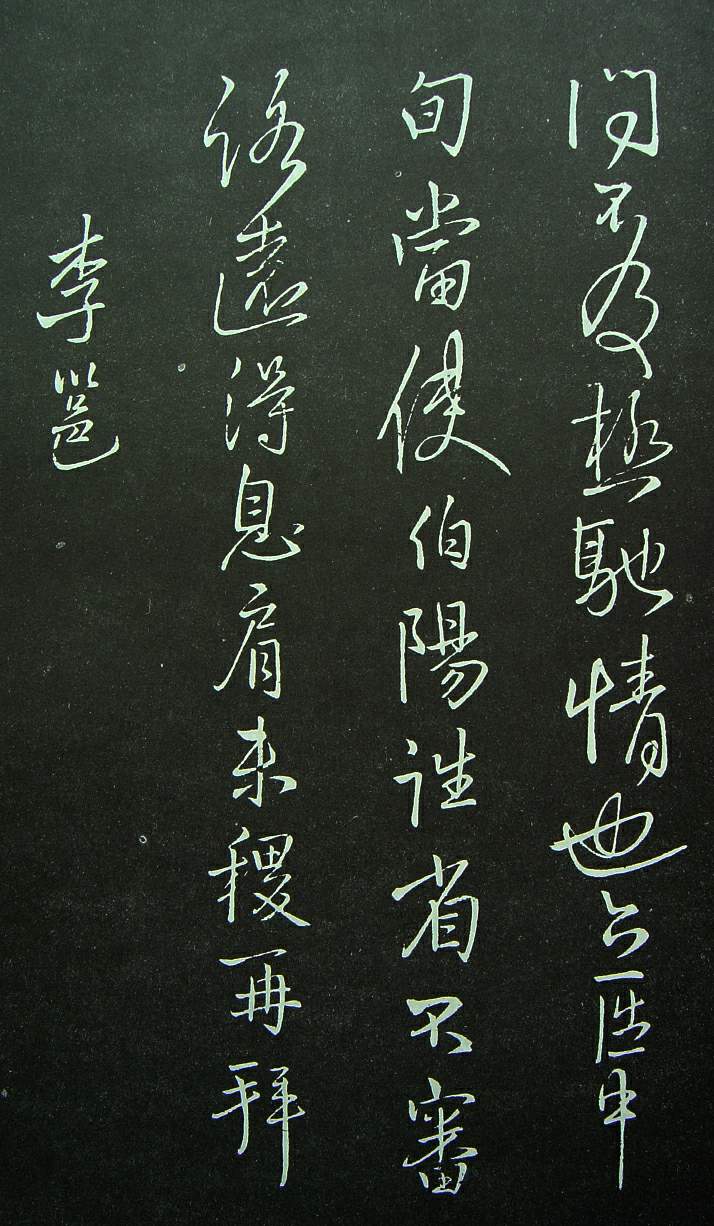 問不及極馳情也中
旬當使伯陽省不審
路遠得息肩未稷再拜
李邕